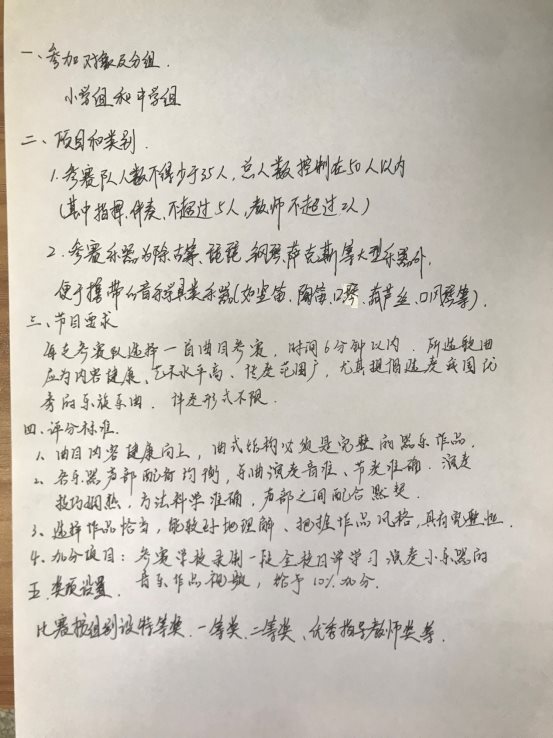 一、参加对象及分组.
小学组和中学组
二、项目和类别.
1.参赛队人数不得少于35人,总人数控制在50人以内
(其中指挥、伴奏、不超过5人,教师不超过2人)
2.参赛乐器为除古筝、琵琶、钢琴、萨克斯等大型乐器外,
便于携带的音乐学具类乐器(如竖笛、陶笛、口琴、葫芦丝、口风琴等).
三、节目要求
每支参赛队选择一首曲目参赛,时间6分钟以内.所选歌曲
应为内容健康、艺术水平高、传度范围广,尤其提倡选度我国优
秀的民族乐曲.伴奏形式不限.
四、评分标准.
1、曲目内容健康向上,曲式结构必须是完整的器乐作品.
2、各乐器声部配备均衡,乐曲演奏音准、节奏准确.演奏
技巧娴熟,方法科学准确,声部之间配合默契.
3、选择作品恰当,能较好地理解、把握作品风格,具有完整性.
4、加分项目:参赛学校录制一段全校日常学习演奏小乐器的
音乐作品视频,给予10%加分.
五.奖项设置.
比赛按组别设特等奖.一等奖、二等奖、优秀指导教师奖等.